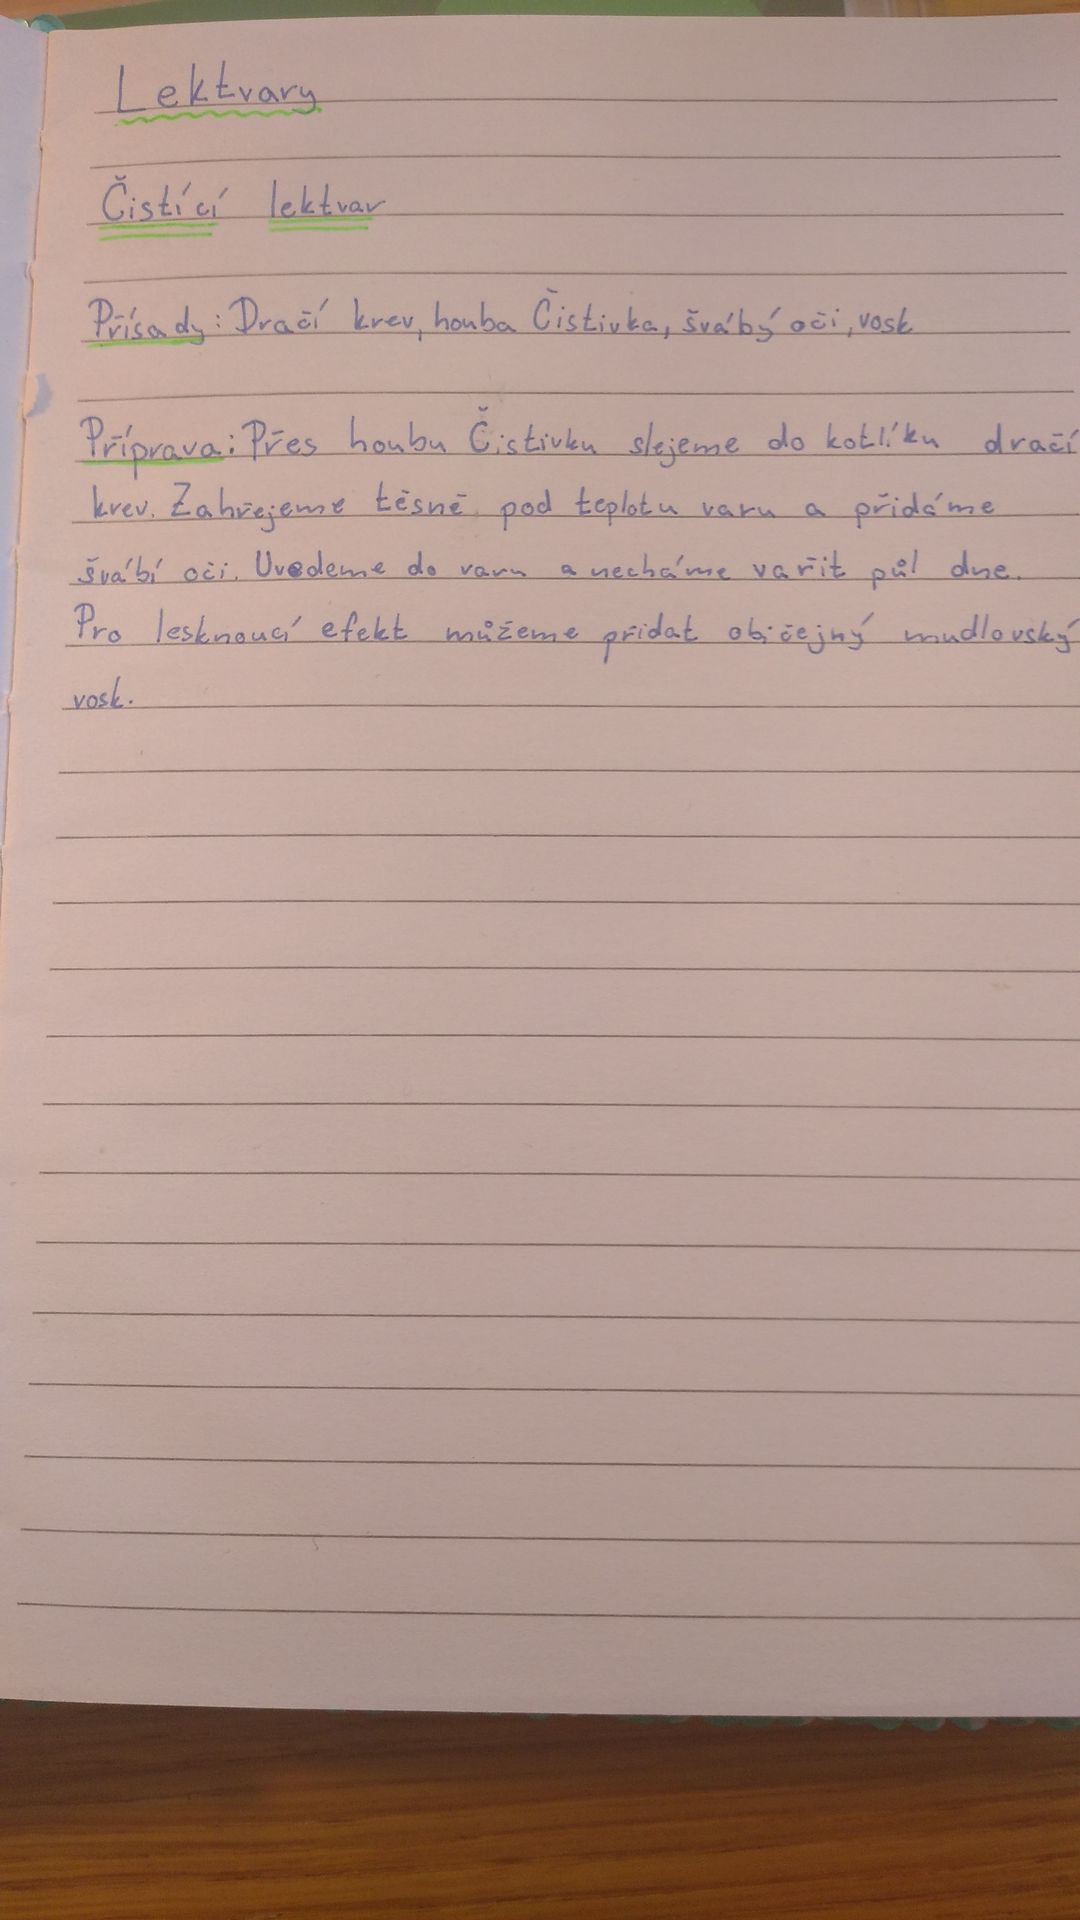 Lektvary
Čistící lektvar
Přísady: Dračí krev, houba Čistivka, švábý oči, vosk
Příprava: Přes houbu Čistivku slejeme do kotlíku dračí
krev. Zahřejeme těsně pod teplotu varu a přidáme
švábí oči. Uvedeme do varu a necháme vařit půl dne.
Pro lesknoucí efekt můžeme přidat običejný mudlovský
vosk.